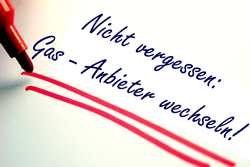 Nicht vergessen:
Gas - Anbieter wechseln!